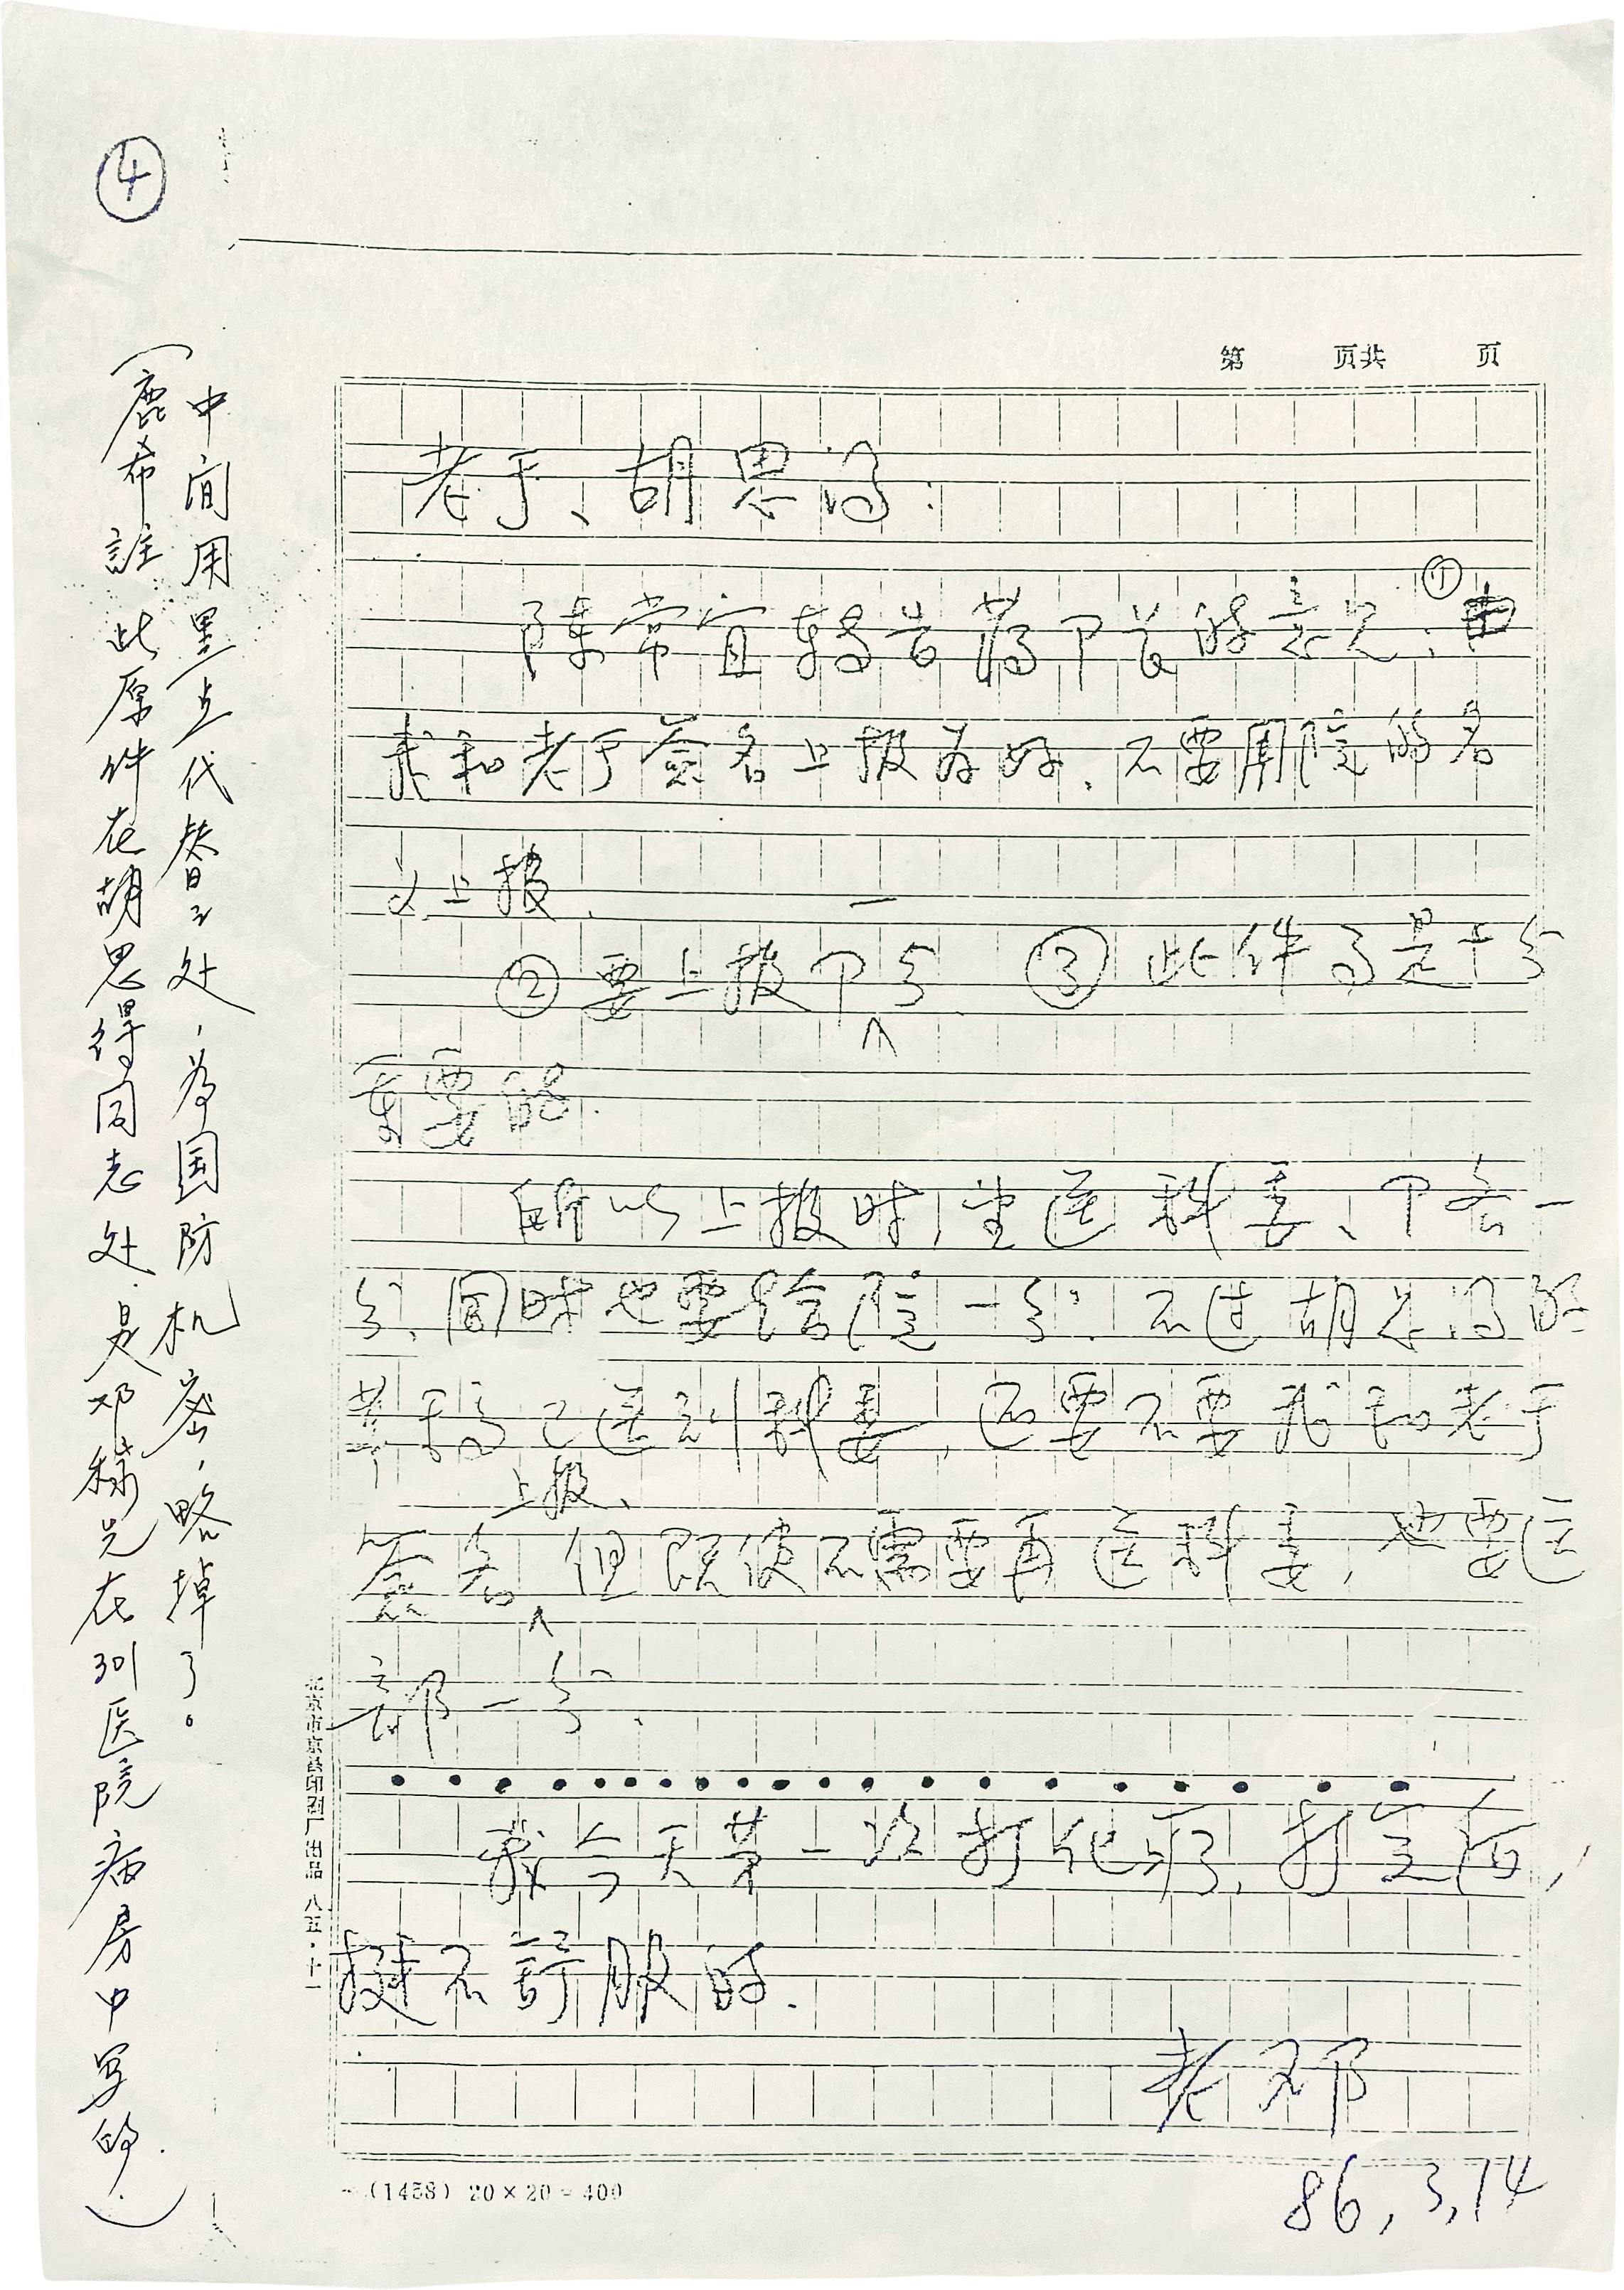 ④
第 页共 页
老于、胡思得：
陈常宜转告蒋部长的意见，①由
我和老于签名上报为好，不要用院的名
义上报、
②要上报部一份 ③此件事是十分
重要的.
所以上报时，望送科委、部各一
份，同时也要给院一份. 不过胡思得的
已送到科委，还要不要我和老于
签名上报、但既使不需要再送科委，也要送
部一份.
我今天第一次打化疗，打完后，
挺不舒服的.
老邓
86,3,14
中间用黑点代替之处，为国防机密，略掉了。
（鹿希註 此原件在胡思得同志处.是邓稼先在301医院病房中写的.）
北京市京昌印刷厂出品 八五·十一
(1458) 20×20=400